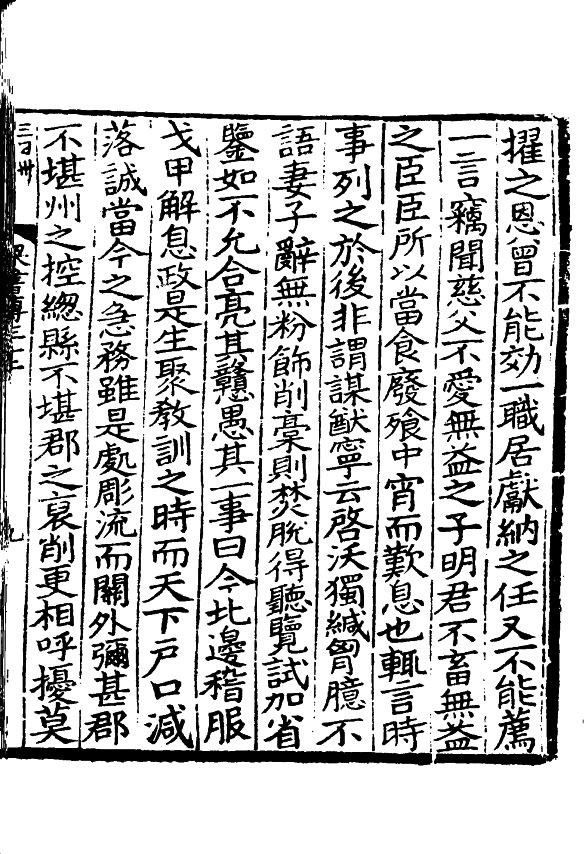 擢之恩曾不能効一職居獻納之任又不能薦
一言竊聞慈父不愛無益之子明君不畜無益
之臣臣所以當食廢飱中宵而歎息也輒言時
事列之於後非謂謀猷寧云啓沃獨緘胷臆不
語妻子辭無粉飾削槀則焚脫得聽覽試加省
鑒如不允合亮其戇愚其一事曰今北邊稽服
戈甲解息政是生聚教訓之時而天下戶口減
落誠當今之急務雖是處彫流而關外彌甚郡
不堪州之控緫縣不堪郡之裒削更相呼擾莫